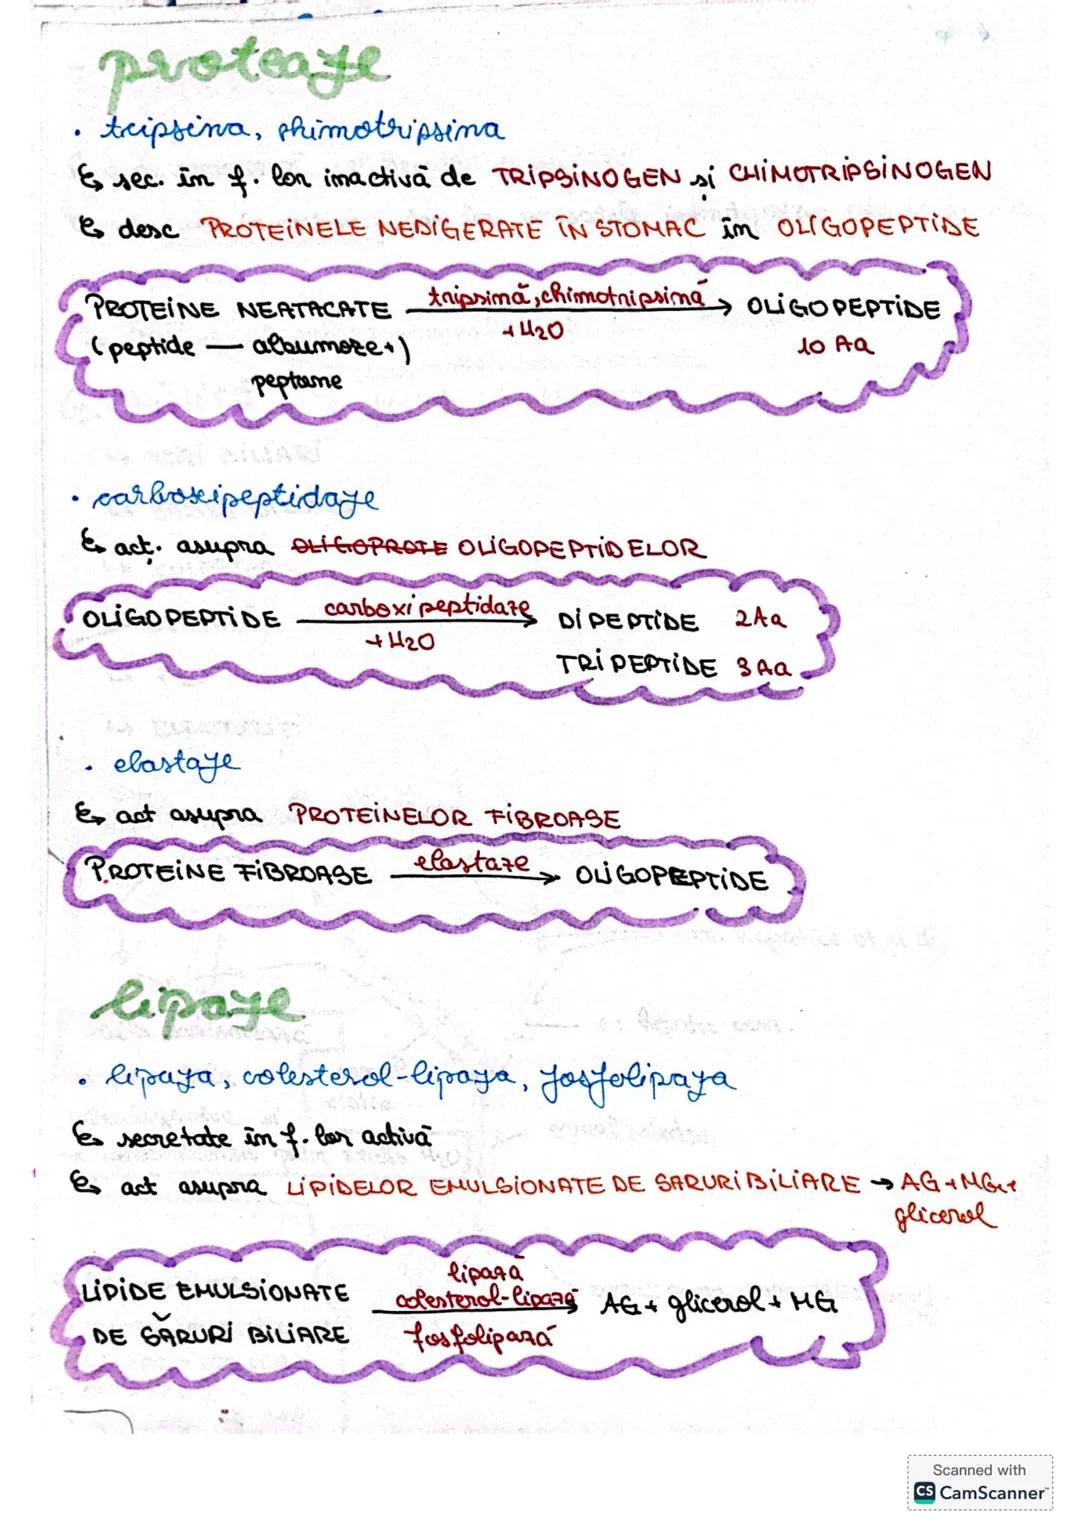 proteaze
• tripsina, chimotripsina
↳ sec. în f. lor inactivă de TRIPSINOGEN și CHIMOTRIPSINOGEN
↳ desc PROTEINELE NEDIGERATE ÎN STOMAC în OLIGOPEPTIDE
PROTEINE NEATACATE tripsină, chimotripsină → OLIGOPEPTIDE
+ H2O
(peptide — albumoze +) 10 Aa
peptone
• carboxipeptidaze
↳ acț. asupra OLIGOPROTE OLIGOPEPTIDELOR
OLIGOPEPTIDE carboxipeptidaze → DIPEPTIDE 2Aa
+ H2O
TRIPEPTIDE 3 Aa
• elastaze
↳ act asupra PROTEINELOR FIBROASE
PROTEINE FIBROASE elastaze → OLIGOPEPTIDE
lipaze
• lipaza, colesterol-lipaza, fosfolipaza
↳ secretate în f. lor activă
↳ act asupra LIPIDELOR EMULSIONATE DE SARURI BILIARE → AG + MG +
glicerol
lipază
LIPIDE EMULSIONATE colesterol-lipază → AG + glicerol + MG
DE SĂRURI BILIARE fosfolipază
Scanned with
CS CamScanner